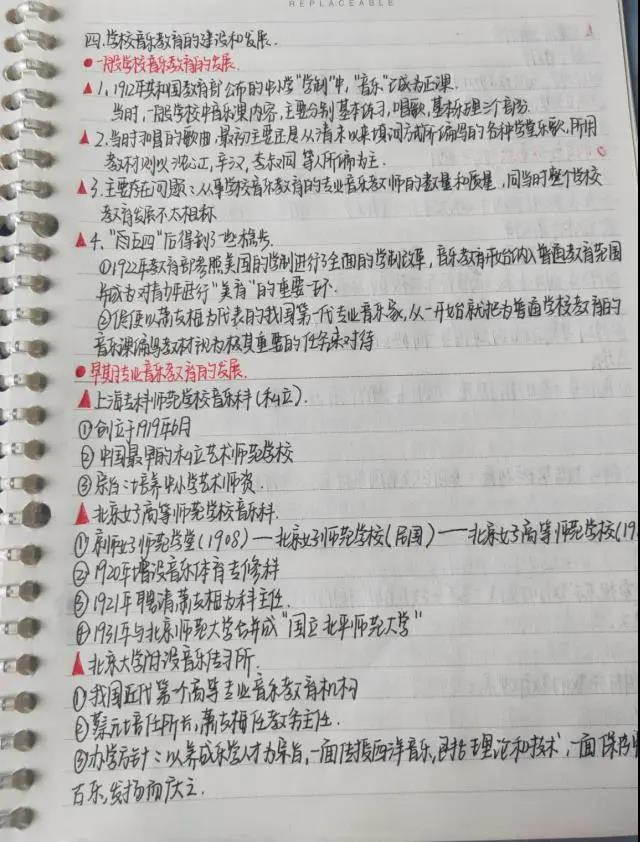 REPLACEABLE
四.学校音乐教育的建设和发展.
●一般学校音乐教育的发展.
▲1.1912年共和国教育部公布的中小学"学制"中,"音乐"已成为正课.
当时,一般学校中音乐课内容,主要分别基本练习,唱歌,基本乐理三个部分.
▲2.当时习唱的歌曲.最初主要还是从清末以来填词方式所编写的各种学堂乐歌,所用
教材则以沈心工,辛汉,李叔同等人所编为主.
▲3.主要存在问题:从事学校音乐教育的专业音乐教师的数量和质量,同当时整个学校
教育发展不太相称
▲4."五四"后得到了些稳步.
①1922年教育部参照美国的学制进行了全面的学制改革,音乐教育开始纳入普通教育范围
并成为对青少年进行"美育"的重要一环.
②促使以萧友梅为代表的我国第一代专业音乐家,从一开始就把为普通学校教育的
音乐课编写教材视为极其重要的任务来对待
●早期专业音乐教育的发展.
▲上海专科师范学校音乐科(私立).
①创立于1919年6月
②中国最早的私立艺术师范学校
③宗旨:培养中小学艺术师资.
▲北京女子高等师范学校音乐科.
①京师女子师范学堂(1908)—北京女子师范学校(民国)—北京女子高等师范学校(19
②1920年增设音乐体育专修科
③1921年聘请萧友梅为科主任.
④1931年与北京师范大学合并成"国立北平师范大学"
▲北京大学附设音乐传习所.
①我国近代第一个高等专业音乐教育机构
②蔡元培任所长,萧友梅任教务主任.
③办学方针:以养成乐学人才为宗旨,一面传授西洋音乐,包括理论和技术,一面保存
古乐,发扬而广之.